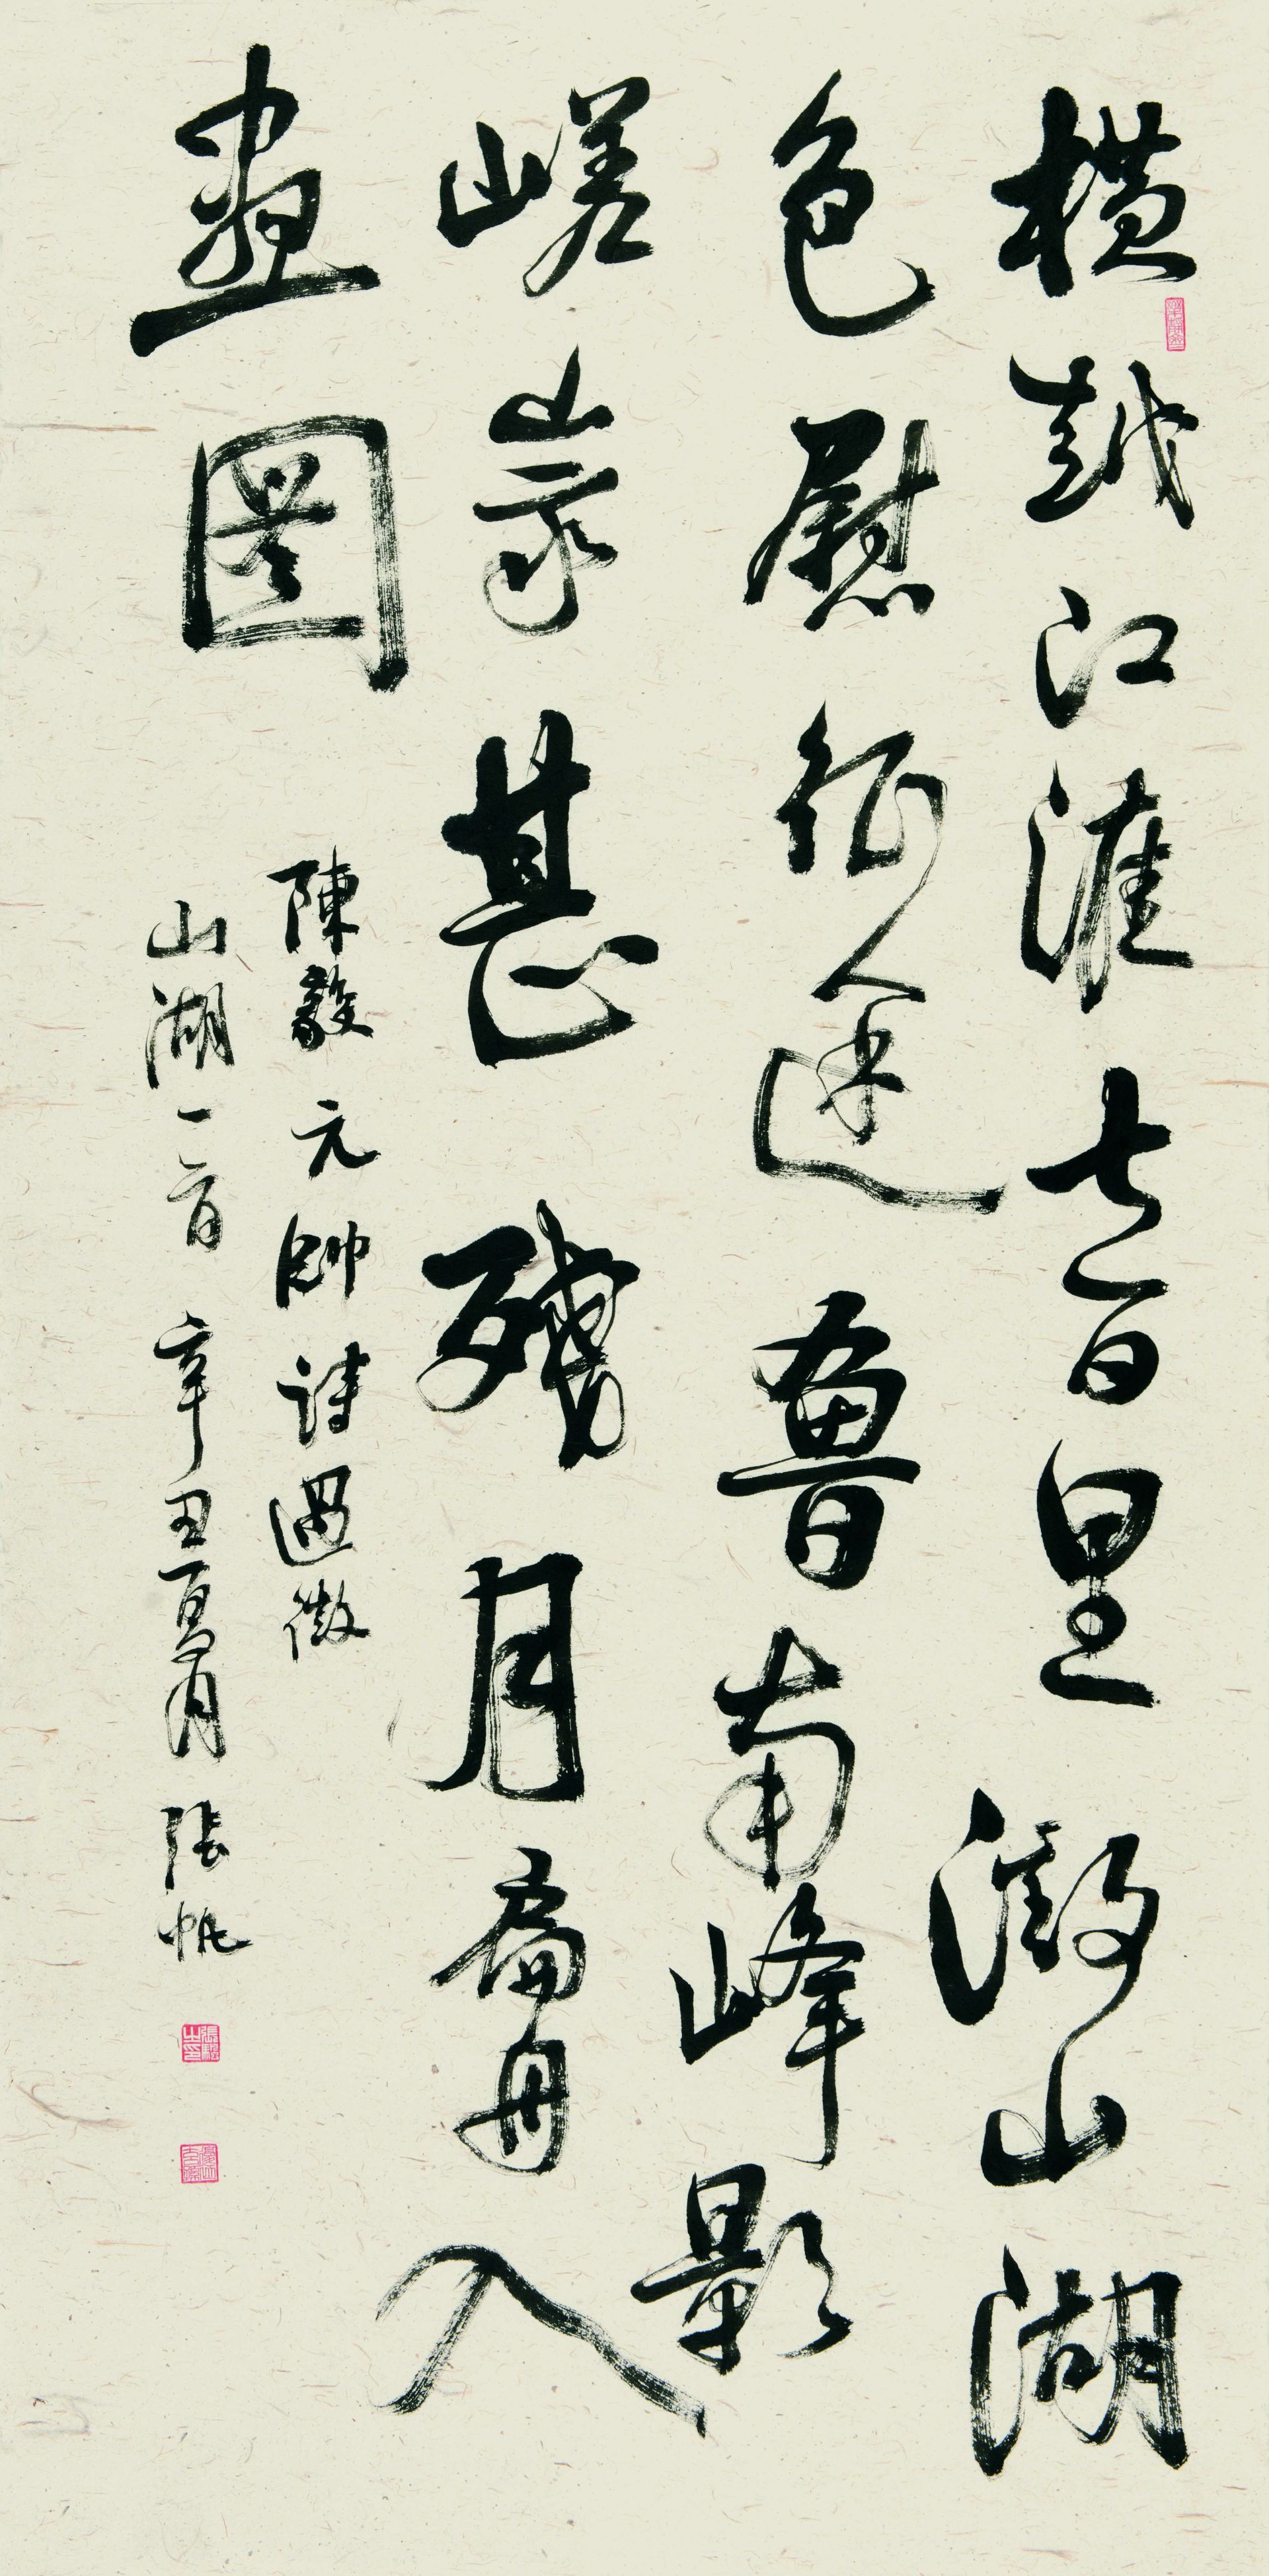 横越江淮七百里微山湖
色慰征途魯南峰影
嵯峩甚殘月扁舟入
畫圖
陳毅元帥詩過微
山湖一首辛丑夏月張帆